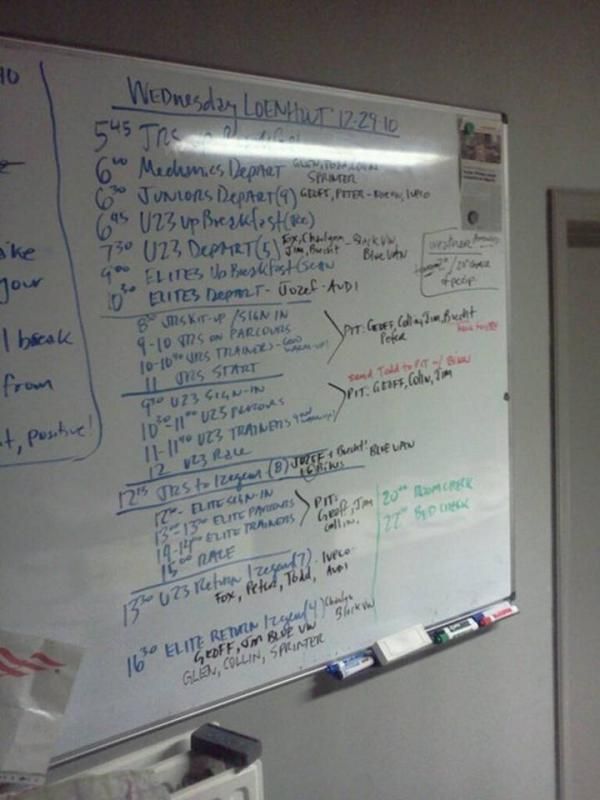 WEDnesday LOENHOUT 12-29-10
5 45 JRS up
6 00 Mechanics DEPART GLEN,
SPRINTER
6 30 JUNIORS DEPART (9) GEOFF, PETER - IVECO
6 45 U23 up Breakfast
7 30 U23 DEPART (5) Fox, - Black VW
Jim, Brecht BLUE VAN
9 00 ELITES Up Breakfast
10 30 ELITES DEPART - Jozef - AUDI
weather:
8 30 JRS KIT-UP / SIGN IN
9-10 JRS ON PARCOURS
10-10 40 JRS TRAINERS - GOOD WARM-UP!
11 JRS START
PIT: GEOFF, Collin, Jim, Brecht
Peter
Send Todd to PIT w/
9 30 U23 SIGN-IN
10 30-11 00 U23 PARCOURS
11-11 40 U23 TRAINERS
12 U23 RACE
PIT: GEOFF, Colin, Jim
12 15 JRS to Izegem (8) JOZEF + Brecht BLUE VAN
12 00 - ELITE SIGN-IN
13 00-13 30 ELITE PARCOURS
ELITE TRAINERS
15 00 RACE
PIT:
Geoff, Jim
Collin,
20 00 ROOM CHECK
22 00 BED CHECK
13 30 U23 Return Izegem (7) - Iveco -
Fox, Peter, Todd, AUDI
16 30 ELITE RETURN Izegem (4)
GEOFF, JIM BLUE VW Black VW
GLEN, COLLIN, SPRINTER
your
break
from
positive!